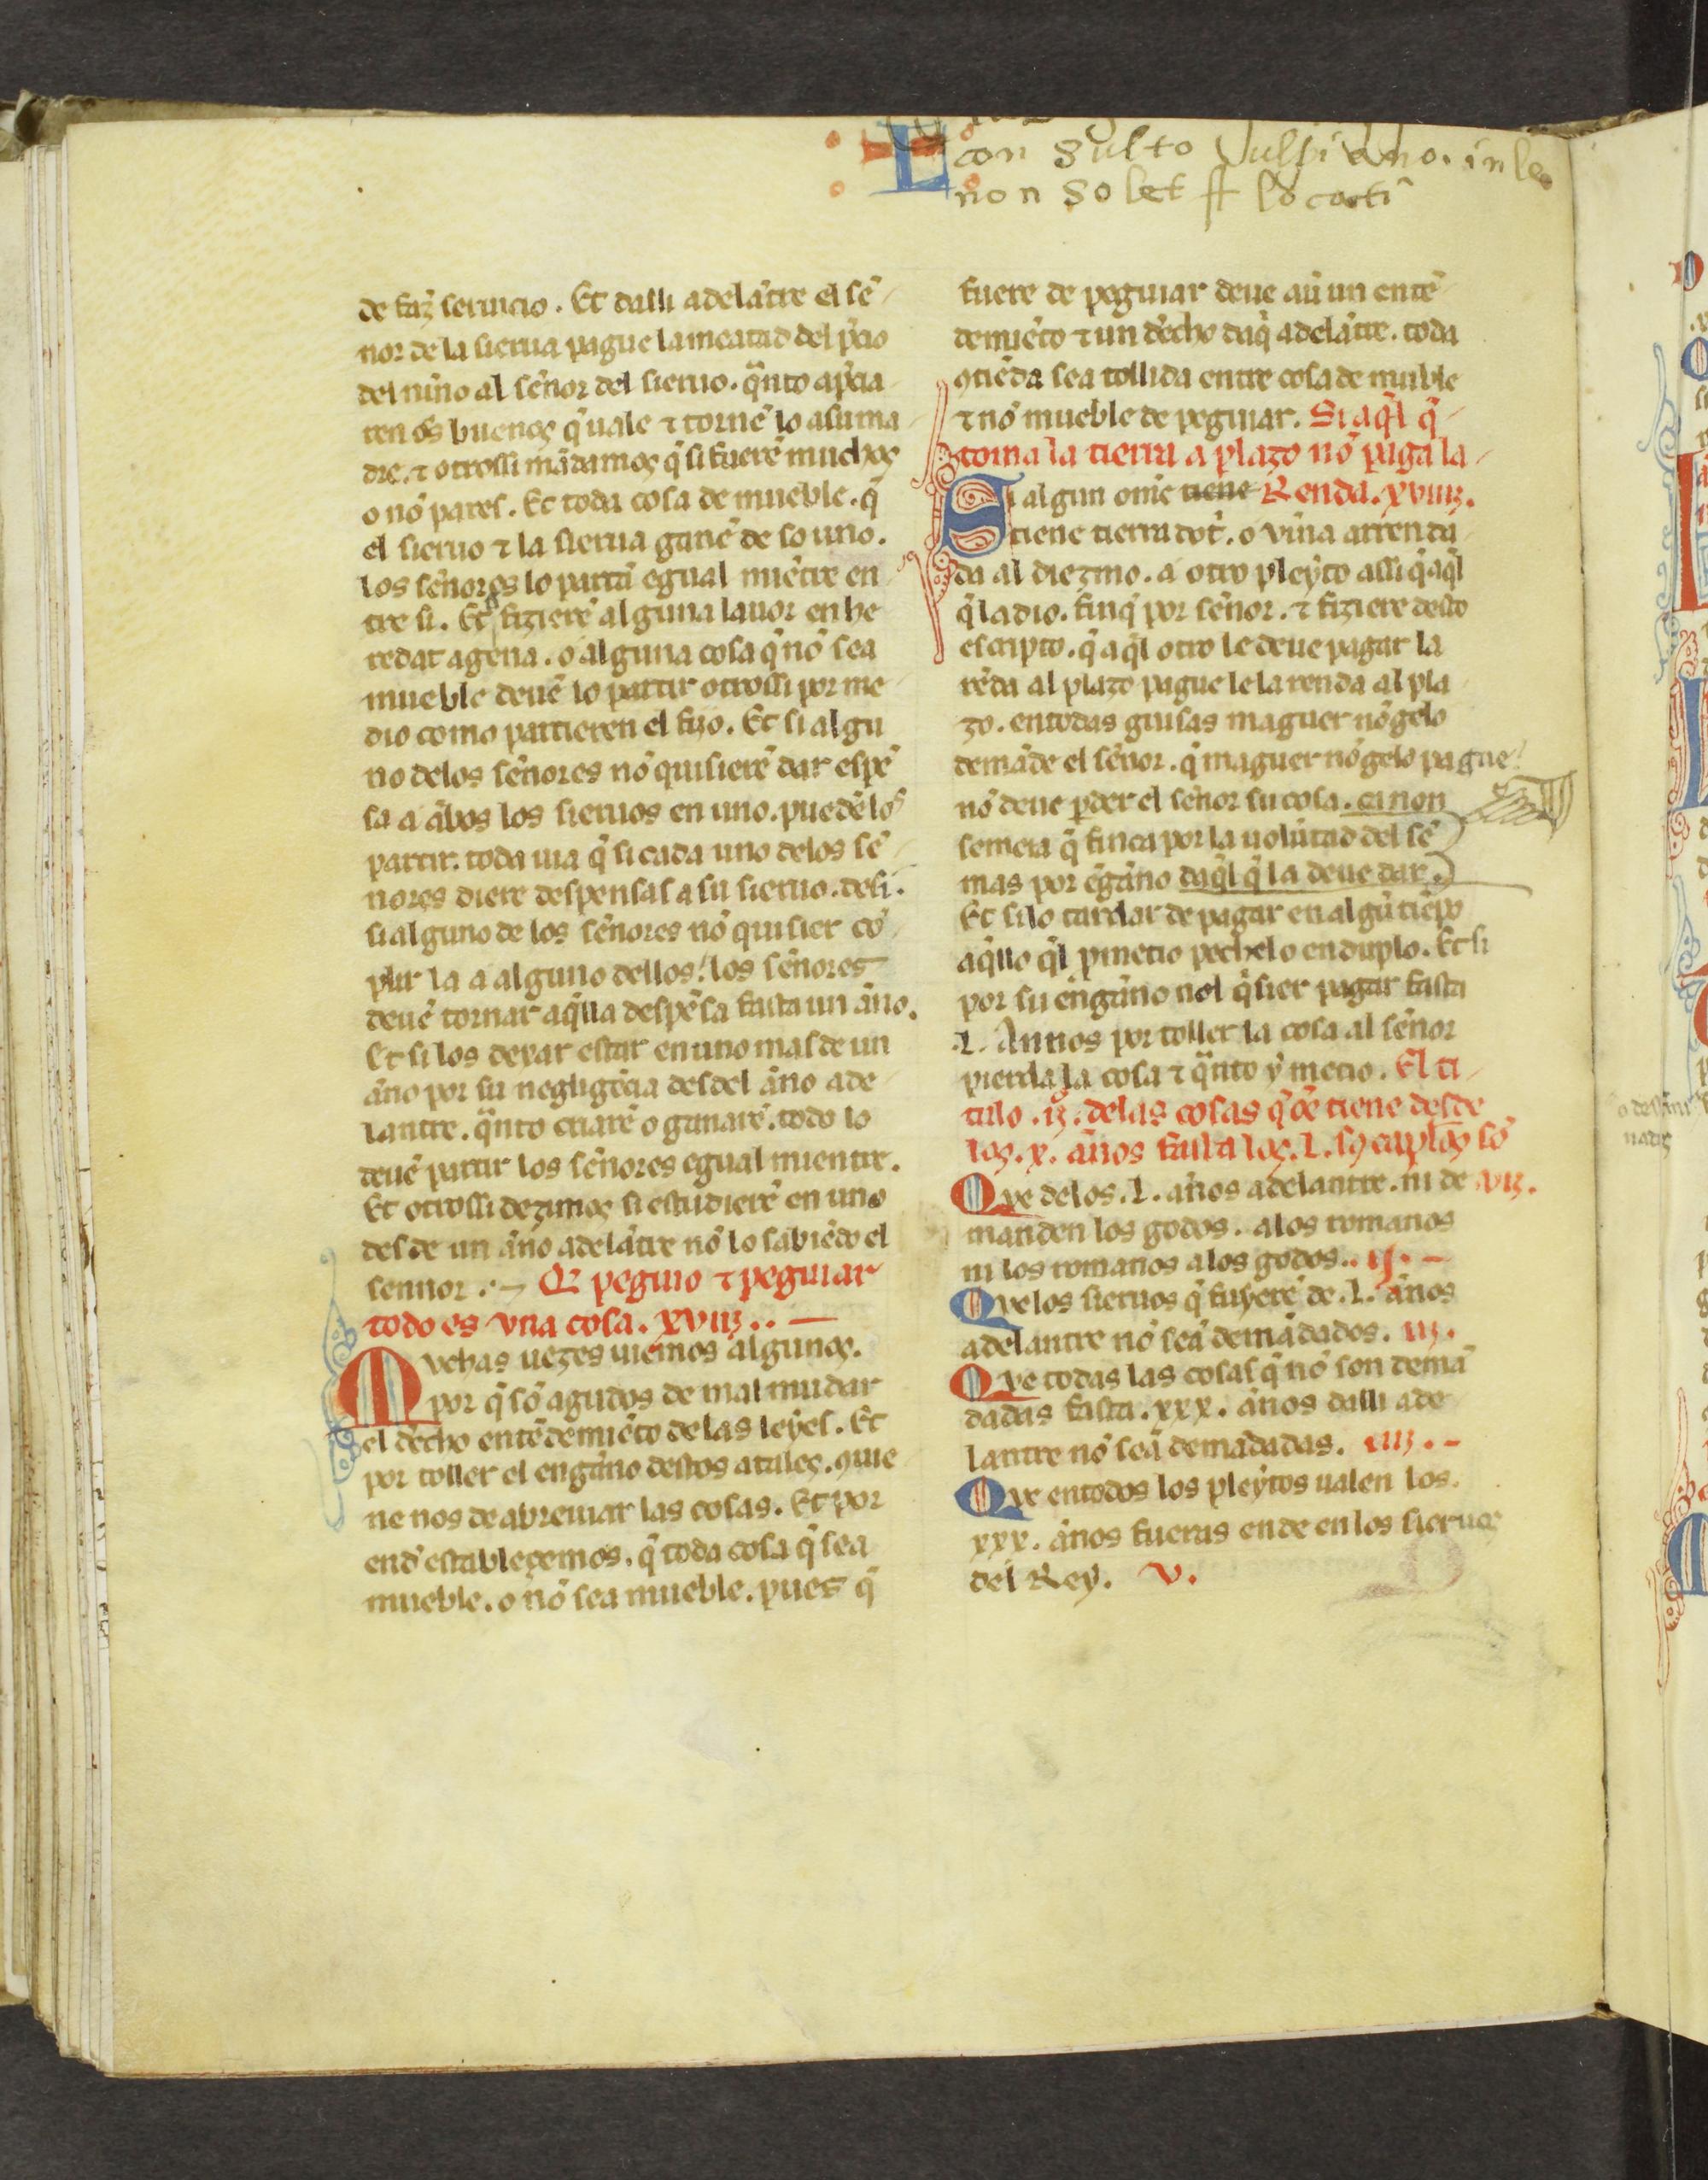 L
con sulto Vulpiano. in le
non solet ff locati
de faz seruicio. Et dalli adelãtre el sẽ
nor de la sierua pague la meatad del p̃cio
del nĩno al sẽnor del sieruo. q̃nto ap̃cia
ren os̃ buenos q̃ uale τ tornẽ lo a su ma
dre. τ otrossi mãdamos q̃ si fuerẽ muchos
o nõ pares. Et toda cosa de mueble. q̃
el sieruo τ la sierua ganẽ de so uno.
los sẽnores lo partã egual miẽtre en
tre si. Et fizierẽ alguna lauor en he
redat agena. o alguna cosa q̃ nõ sea
mueble deuẽ lo partir otrossi por me
dio como partieren el fijo. Et si algu
no delos sẽnores nõ quisierẽ dar espẽ
sa a ãbos los sieruos en uno. puedẽ los
partir. toda uia q̃ si cada uno delos sẽ
nores diere despensas a su sieruo. desi.
si alguno de los sẽnores nõ quisier cõ
plir la a alguno dellos. los sẽnores
deuẽ tornar aq̃lla despẽsa fasta un ãno.
Et si los dexar estar en uno mas de un
ãno por su negligẽcia desdel ãno ade
lantre. q̃nto criarẽ o ganarẽ. todo lo
deuẽ partir los sẽnores egual mientre.
Et otrossi dezimos si estudierẽ en uno
desde un ãno adelãtre nõ lo sabiẽdo el
sennor. Q̃ peguio τ peguiar
todo es vna cosa. xviij.
Mvchas uezes uiemos algunos.
por q̃ sõ agudos de mal mudar
el dẽcho entẽdemiẽto de las leyes. Et
por toller el engãno destos atales. ꝯuie
ne nos de abreuiar las cosas. Et por
end̃ establecemos. q̃ toda cosa q̃ sea
mueble. o nõ sea mueble. pues q̃
fuere de peguiar deue aũ un entẽ
demiẽto τ un dẽcho daq̃ adelãtre. toda
ꝯtiẽda sea tollida entre cosa de muible
τ nõ mueble de peguiar. Si aq̃l q̃
toma la tierra a plazo nõ paga la
Si algun ome tiene Renda. xviiij.
tiene tierra dot̃. o vĩna arrenda
da al diezmo. a otro pleyto assi q̃ aq̃l
q̃ la dio. finq̃ por sẽnor. τ fiziere desto
escripto. q̃ aq̃l otro le deue pagar la
rẽda al plazo pague le la renda al pla
zo. en todas guisas maguer nõ gelo
demãde el sẽnor. q̃ maguer nõ gelo pague
nõ deue p̃der el sẽnor su cosa. ca non
semeia q̃ finca por la uolũtad del sẽ
mas por ẽgãno daq̃l q̃ la deue dar.
Et si lo tardar de pagar en algũ tiẽpo
aq̃llo q̃l p̃metio pechelo en duplo. Et si
por su engãno nol q̃sier pagar fasta
.L. Annos por toller la cosa al sẽnor
pierda la cosa τ q̃nto p̃metio. El ti
tulo .ij. delas cosas q̃ õe tiene desde
los .x. ãnos fasta los .L.
Qve delos .L. ãnos adelantre. ni de vij.
manden los godos. alos romanos
ni los romanos alos godos.. ij.
Qve los sieruos q̃ fuyerẽ de .L. ãnos
adelantre nõ seã demãdados. iij.
Qve todas las cosas q̃ nõ son demã
dadas fasta .xxx. ãnos dalli ade
lantre nõ seã demãdadas. iiij.
Qve en todos los pleytos ualen los.
xxx. ãnos fueras ende en los sieruos
del Rey. V.